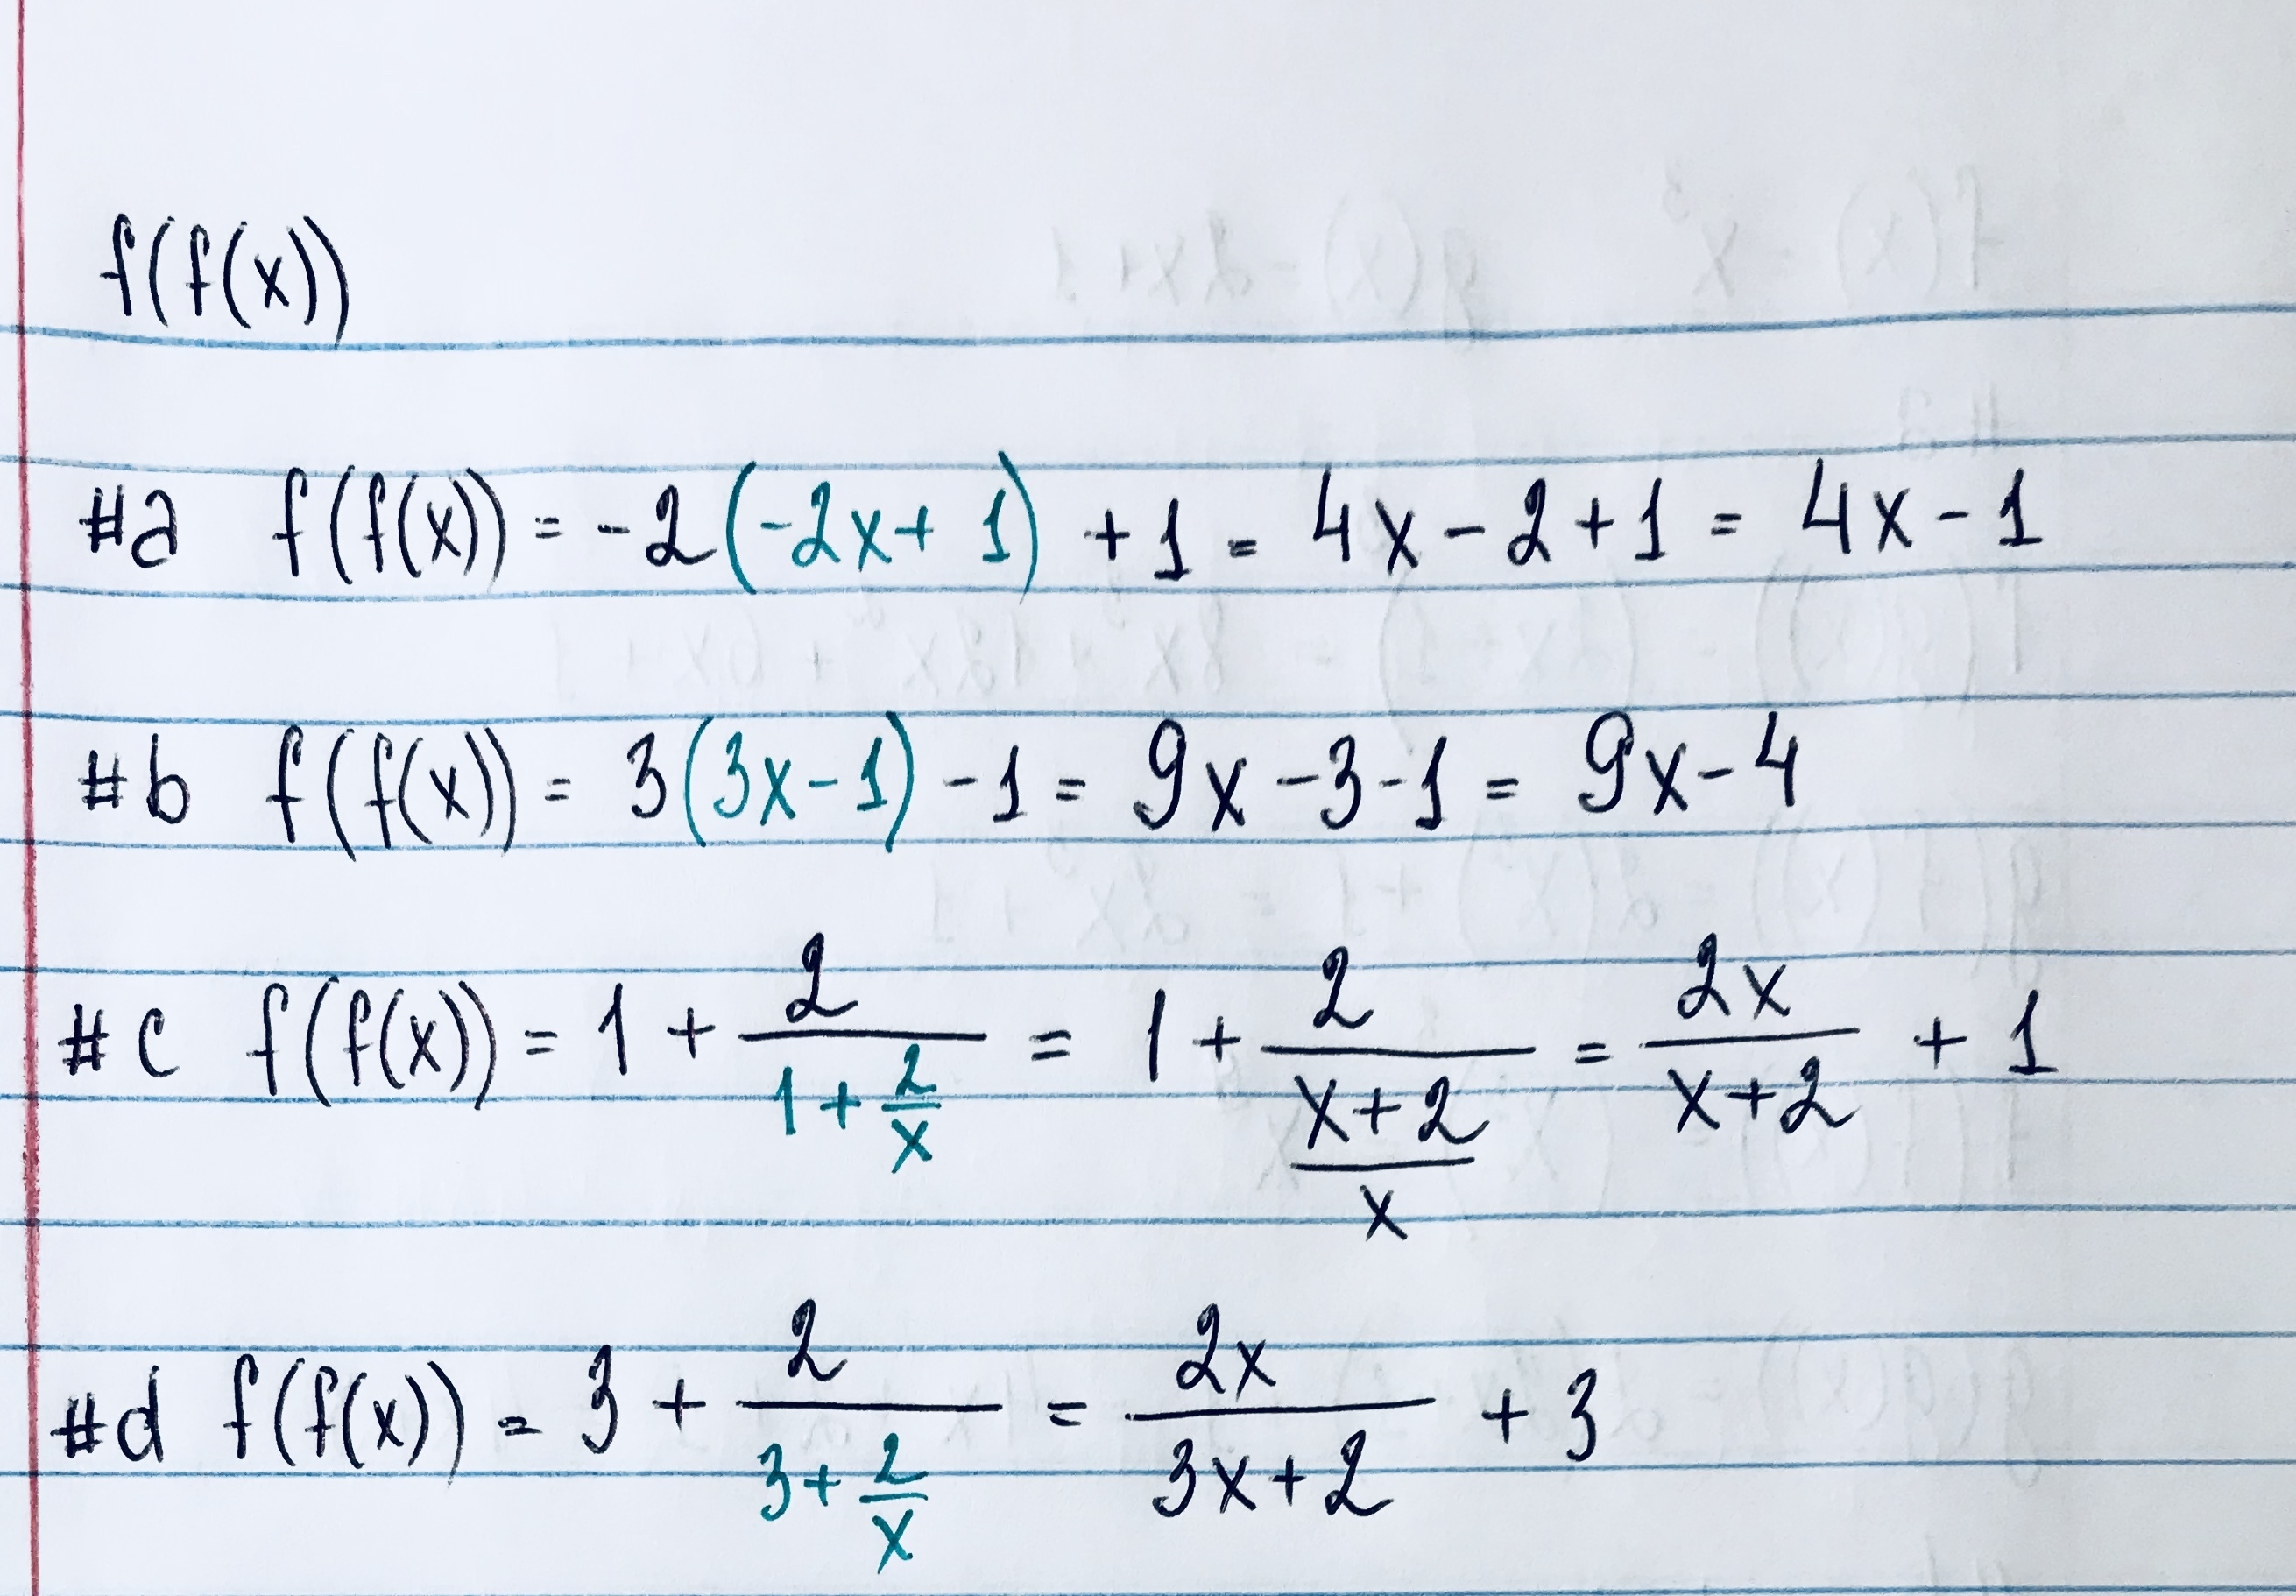 f(f(x))
#a f(f(x)) = -2(-2x+1) +1 = 4x-2+1 = 4x-1
#b f(f(x)) = 3(3x-1)-1 = 9x-3-1 = 9x-4
#c f(f(x)) = 1 + 2/(1 + 2/x) = 1 + 2/((x+2)/x) = 2x/(x+2) + 1
#d f(f(x)) = 3 + 2/(3 + 2/x) = 2x/(3x+2) + 3